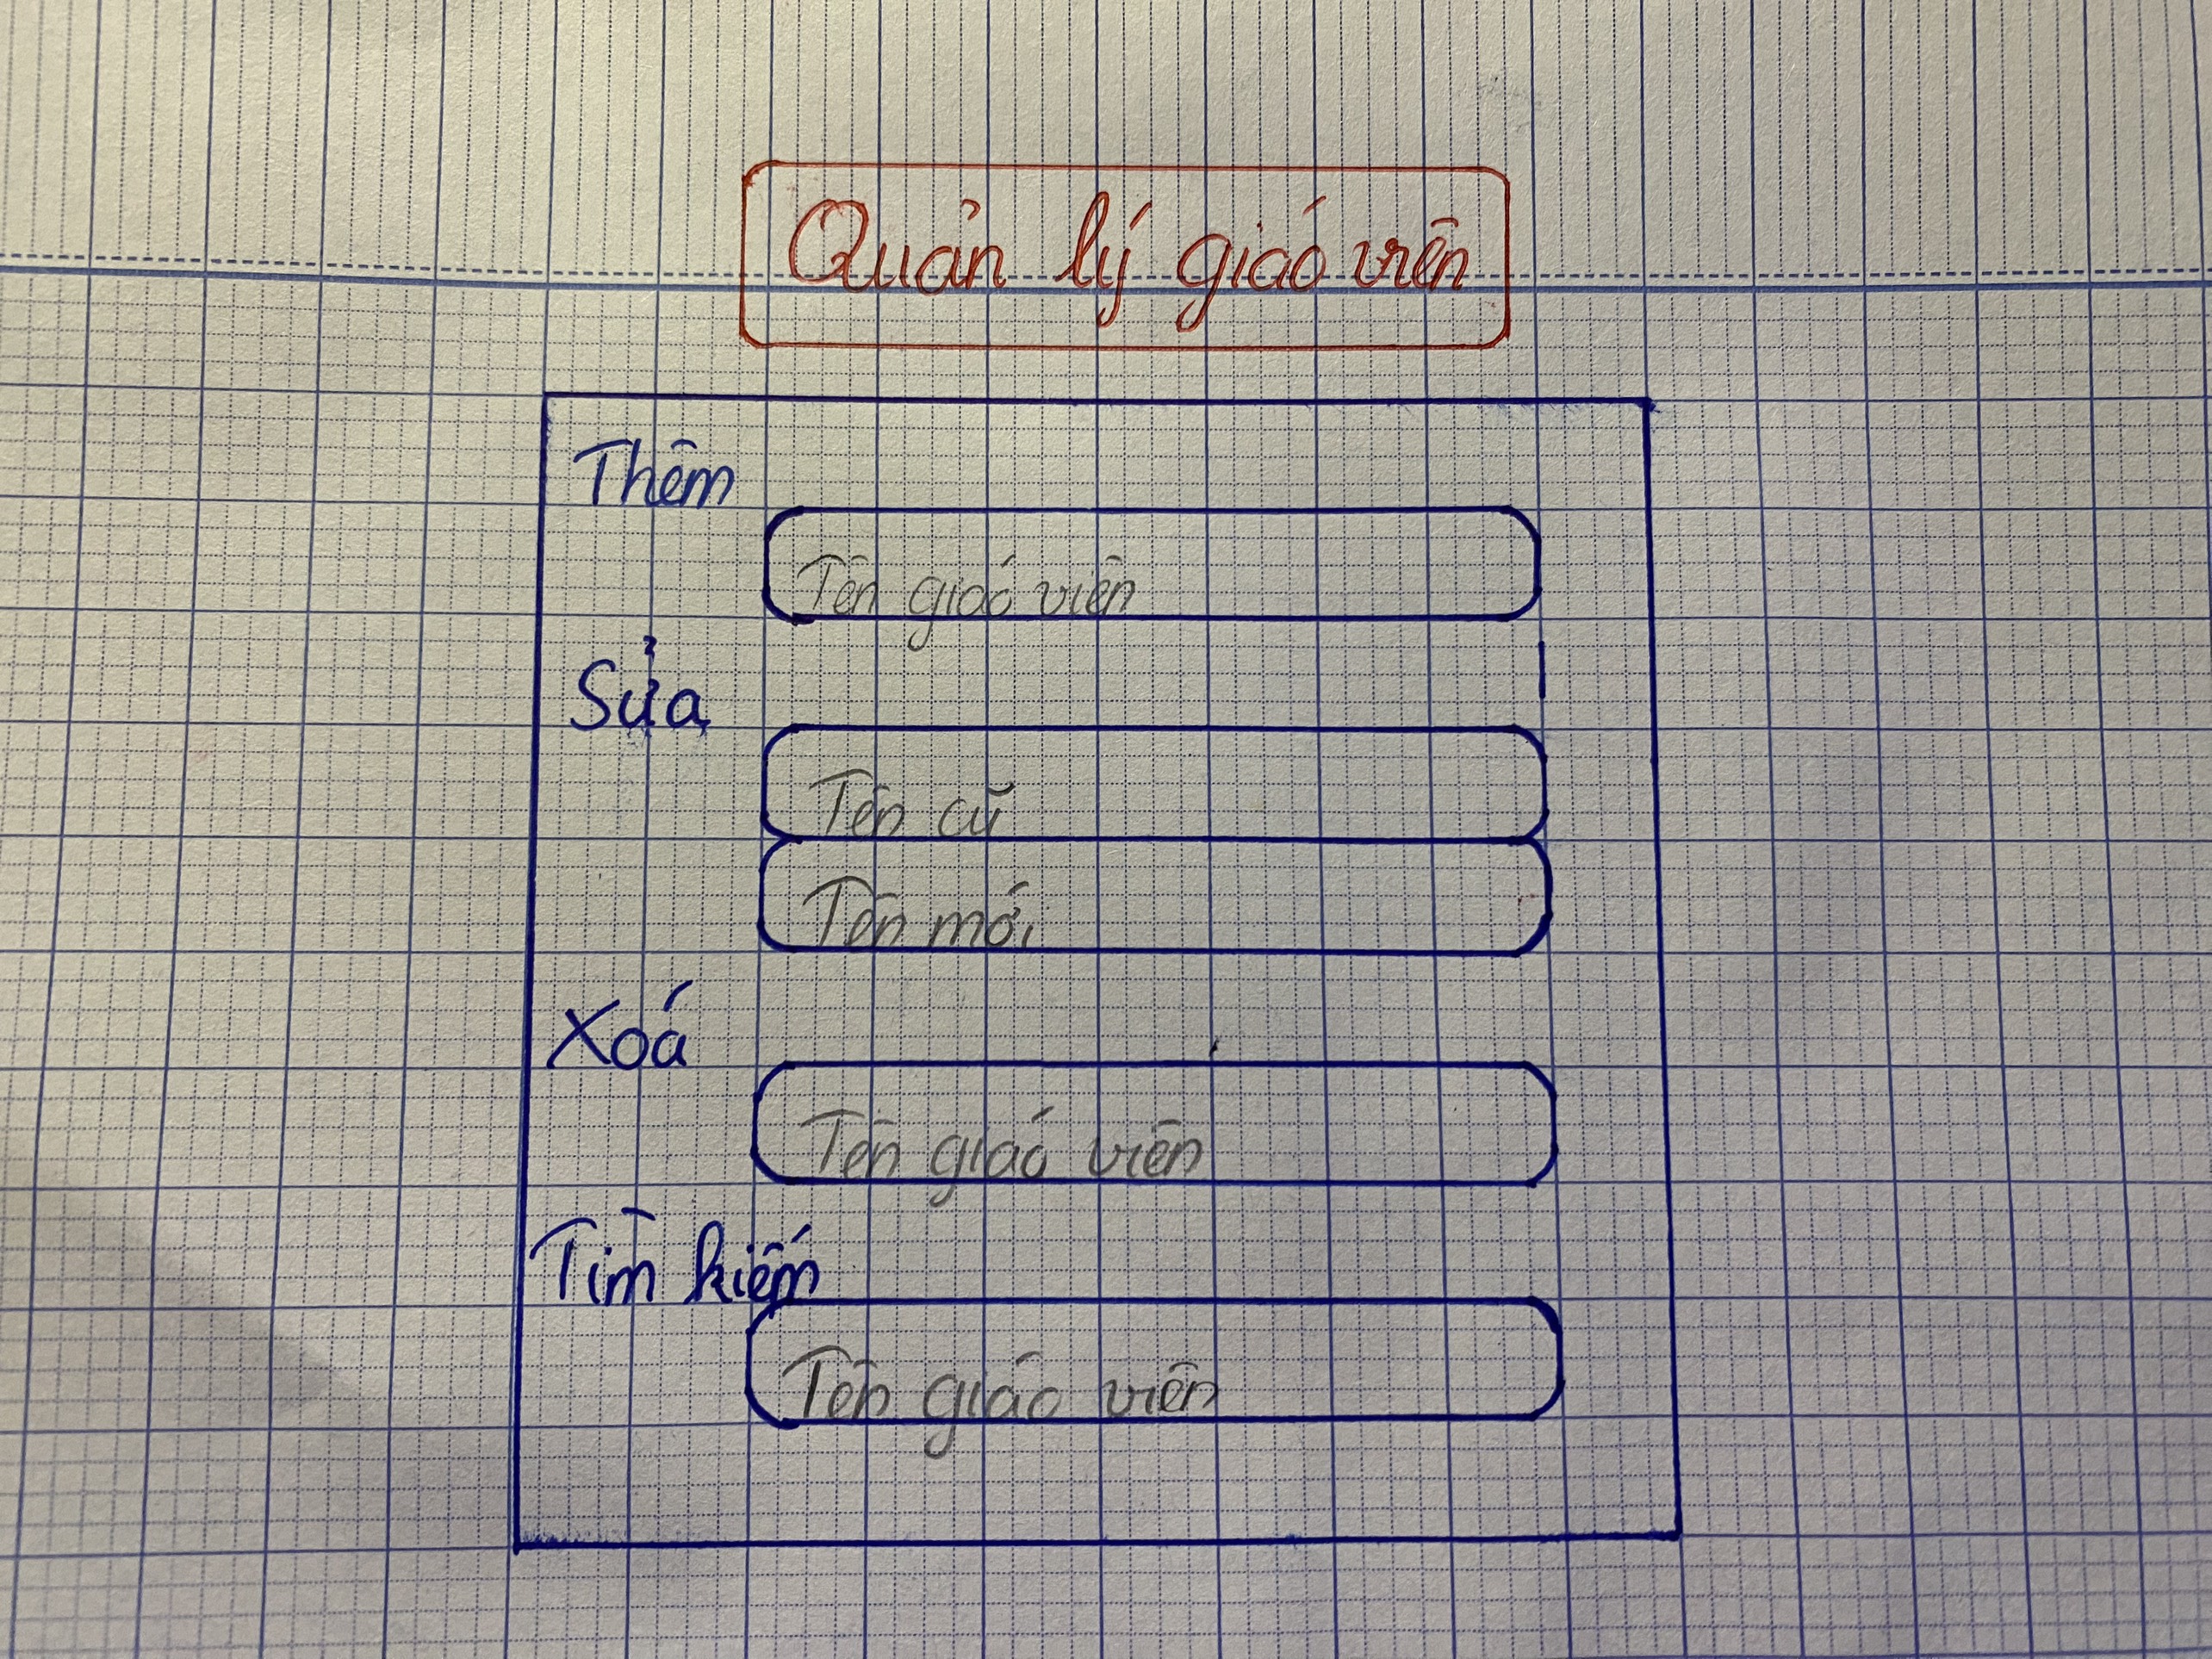 Quản lý giáo viên
Thêm
Tên giáo viên
Sửa
Tên cũ
Tên mới
Xoá
Tên giáo viên
Tìm kiếm
Tên giáo viên